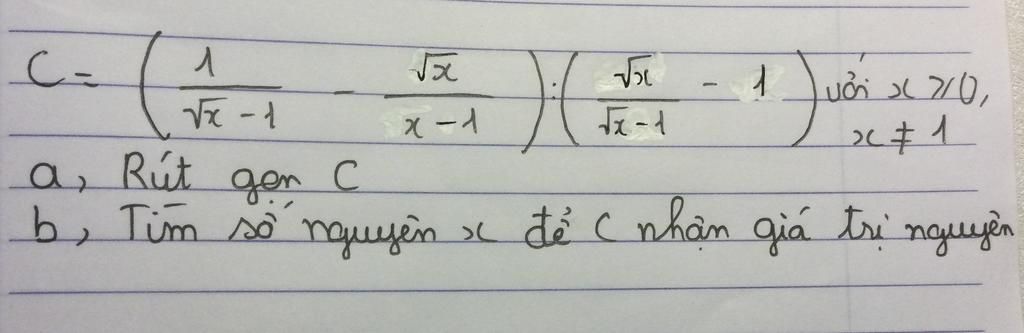 C = ( 1/(√x - 1) - √x/(x - 1) ) : ( √x/(√x - 1) - 1 ) với x ≥ 0,
x ≠ 1
a, Rút gọn C
b, Tìm số nguyên x để C nhận giá trị nguyên